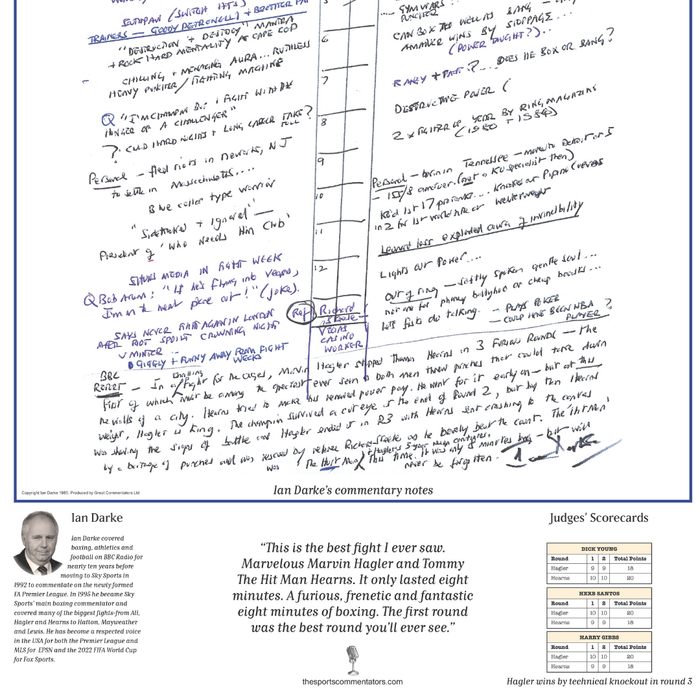 SOUTHPAW (SWITCH HITS)
TRAINERS — GOODY PETRONELLI + BROTHER PAT
"DESTRUCTION + DESTROY" MANTRA
+ ROCK HARD MENTALITY @ CAPE COD
CHILLING + MENACING AURA... RUTHLESS
HEAVY PUNCHER / FIGHTING MACHINE
Q "I'M CHAMPION BUT I FIGHT WITH THE
HUNGER OF A CHALLENGER"
? COULD HARD NIGHTS + LONG CAREER TAKE TOLL?
Personal — fled riots in Newark, NJ
to settle in Massachusetts....
Blue collar type warrior
"Sidetracked + Ignored" —
President of "Who Needs Him Club"
SHUNS MEDIA IN FIGHT WEEK
Q Bob Arum: "If he's flying into Vegas,
I'm on the next plane out!" (joke).
SAYS NEVER FIGHT AGAIN IN LONDON
AFTER RIOT SPOILT CROWNING NIGHT
V MINTER —
GIGGLY + FUNNY AWAY FROM FIGHT
WEEKS
5
6
7
8
9
10
11
12
Ref
Richard
Steele
VEGAS
CASINO
WORKER
GYM WARS
CAN BOX AS WELL AS BANG —
AMATEUR WINS BY STOPPAGE...
(POWER TAUGHT?)..
RANGY + FAST ?.... DOES HE BOX OR BANG?
DESTRUCTIVE POWER (
2 x FIGHTER OF YEAR BY RING MAGAZINE
(1980 + 1984)
Personal — born in Tennessee — moved to Detroit at 5
— 155/8 amateur. (not a KO specialist then)
KO'd 1st 17 pro fights... knocks out Pipino Cuevas
in 2 for 1st world title at welterweight
Leonard loss exploded aura of invincibility
Lights out Power...
Out of ring — softly spoken gentle soul...
not one for phoney ballyhoo or cheap insults...
lets fists do talking.
— PLAYS POKER
— COULD HAVE BEEN NBA PLAYER?
BBC
REPORT — In a fight for the ages, Marvin Hagler stopped Thomas Hearns in 3 Furious Rounds — the
first of which must be among the greatest ever seen. Both men threw punches that could tear down
the walls of a city. Hearns tried to make his renowned power pay. He went for it early on — but at this
weight, Hagler is King. The champion survived a cut eye at the end of Round 2, but by then Hearns
was showing the signs of battle and Hagler ended it in R3 with Hearns sent crashing to the canvas
by a barrage of punches and was rescued by referee Richard Steele as he bravely beat the count. The 'Hit Man'
was the Hurt Man this time. It was only 8 minutes long — but will
never be forgotten.
Copyright Ian Darke 1985. Produced by Great Commentators Ltd
Ian Darke's commentary notes
Ian Darke
Ian Darke covered
boxing, athletics and
football on BBC Radio for
nearly ten years before
moving to Sky Sports in
1992 to commentate on the newly formed
FA Premier League. In 1995 he became Sky
Sports' main boxing commentator and
covered many of the biggest fights-from Ali,
Hagler and Hearns to Hatton, Mayweather
and Lewis. He has become a respected voice
in the USA for both the Premier League and
MLS for EPSN and the 2022 FIFA World Cup
for Fox Sports.
"This is the best fight I ever saw.
Marvelous Marvin Hagler and Tommy
The Hit Man Hearns. It only lasted eight
minutes. A furious, frenetic and fantastic
eight minutes of boxing. The first round
was the best round you'll ever see."
thesportscommentators.com
Judges' Scorecards
DICK YOUNG
Round 1 2 Total Points
Hagler 9 9 18
Hearns 10 10 20
HERB SANTOS
Round 1 2 Total Points
Hagler 10 10 20
Hearns 9 9 18
HARRY GIBBS
Round 1 2 Total Points
Hagler 10 10 20
Hearns 9 9 18
Hagler wins by technical knockout in round 3